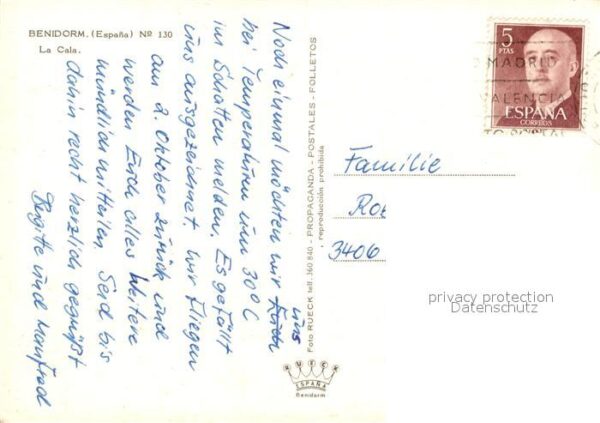 BENIDORM. (España) Nº 130
La Cala.
Noch einmal möchten wir Euch
uns
bei Temperaturen um 30°C
im Schatten melden. Es gefällt
uns ausgezeichnet. Wir fliegen
am 2. Oktober zurück und
werden Euch alles Weitere
mündlich mitteilen. Seid bis
dahin recht herzlich gegrüßt
Brigitte und Manfred
Foto RUECK telf. 360 840 - PROPAGANDA - POSTALES - FOLLETOS
reproducción prohibida
RUECK
ESPAÑA
Benidorm
5
PTAS
ESPAÑA
CORREOS
MADRID
VALENCIA
Familie
Rot
3406
privacy protection
Datenschutz